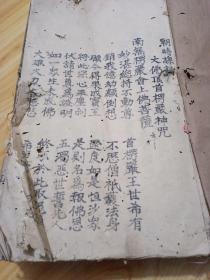 朝時課誦
大佛頂首楞嚴神咒
南無楞嚴會上佛菩薩
妙湛總持不動尊
首楞嚴王世希有
銷我億劫顛倒想
不歷僧祇獲法身
願今得果成寶王
還度如是恒沙眾
將此深心奉塵剎
是則名為報佛恩
伏請世尊為證明
五濁惡世誓先入
如一眾生未成佛
終不於此取泥洹
大雄大力大慈悲